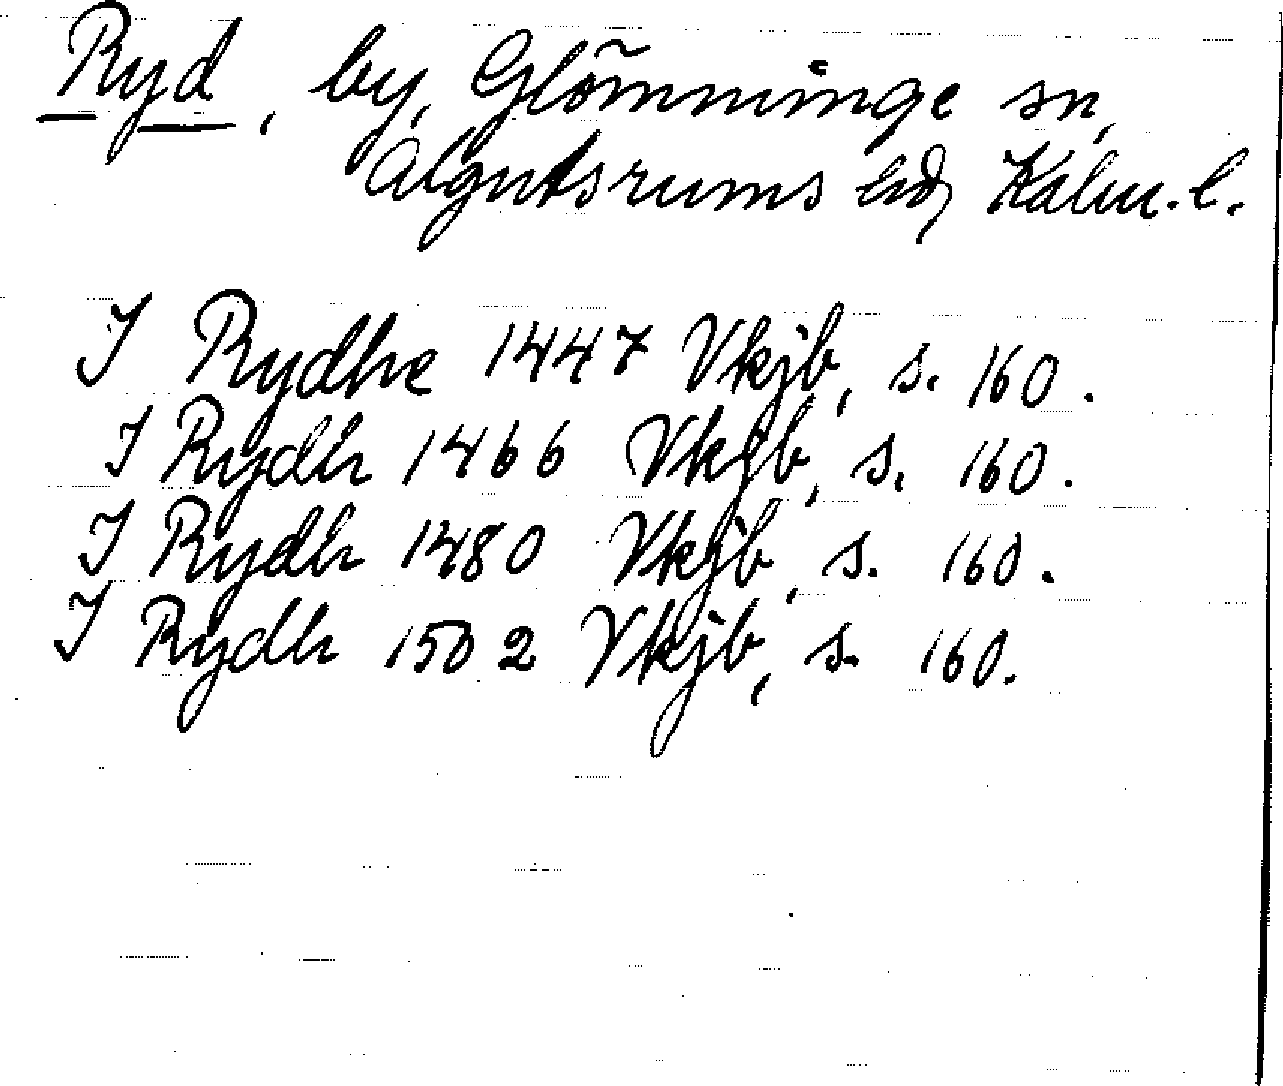 Ryd, by, Glömminge sn,
Algutsrums hd, Kalm. l.
I Rydhe 1447 Vkjb, s. 160.
I Rydh 1466 Vkjb, s. 160.
I Rydh 1480 Vkjb, s. 160.
I Rydh 1502 Vkjb, s. 160.